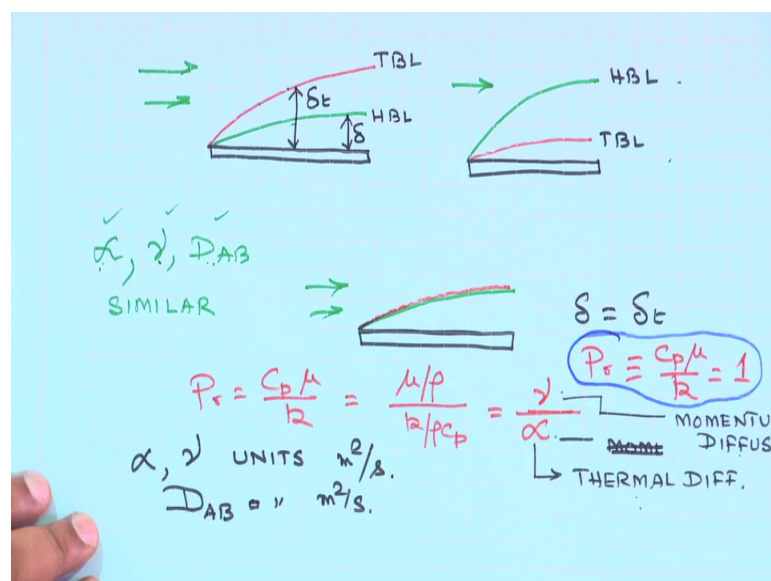 TBL
δt
HBL
δ
HBL
TBL
α, ν, DAB
SIMILAR
δ = δt
Pr ≡ Cpμ/k = 1
Pr = Cpμ/k = μ/ρ / k/ρCp = ν/α
MOMENTU
DIFFUS
THERMAL DIFF.
α, ν UNITS m²/s.
DAB " m²/s.